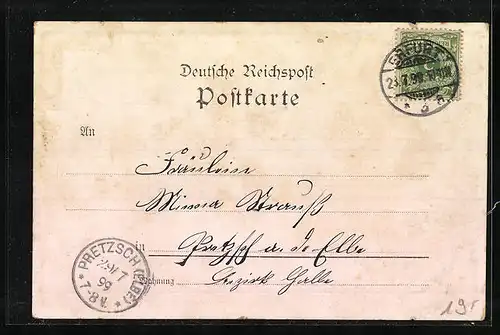 Deutsche Reichspost
Postkarte
ERFURT
23.7.99
* 3 a
An
Fräulein
Minna Strauß
in Pretzsch a. d. Elbe
Wohnung Bezirk Halle
* PRETZSCH (ELBE) *
7
99
7-8 V.
19